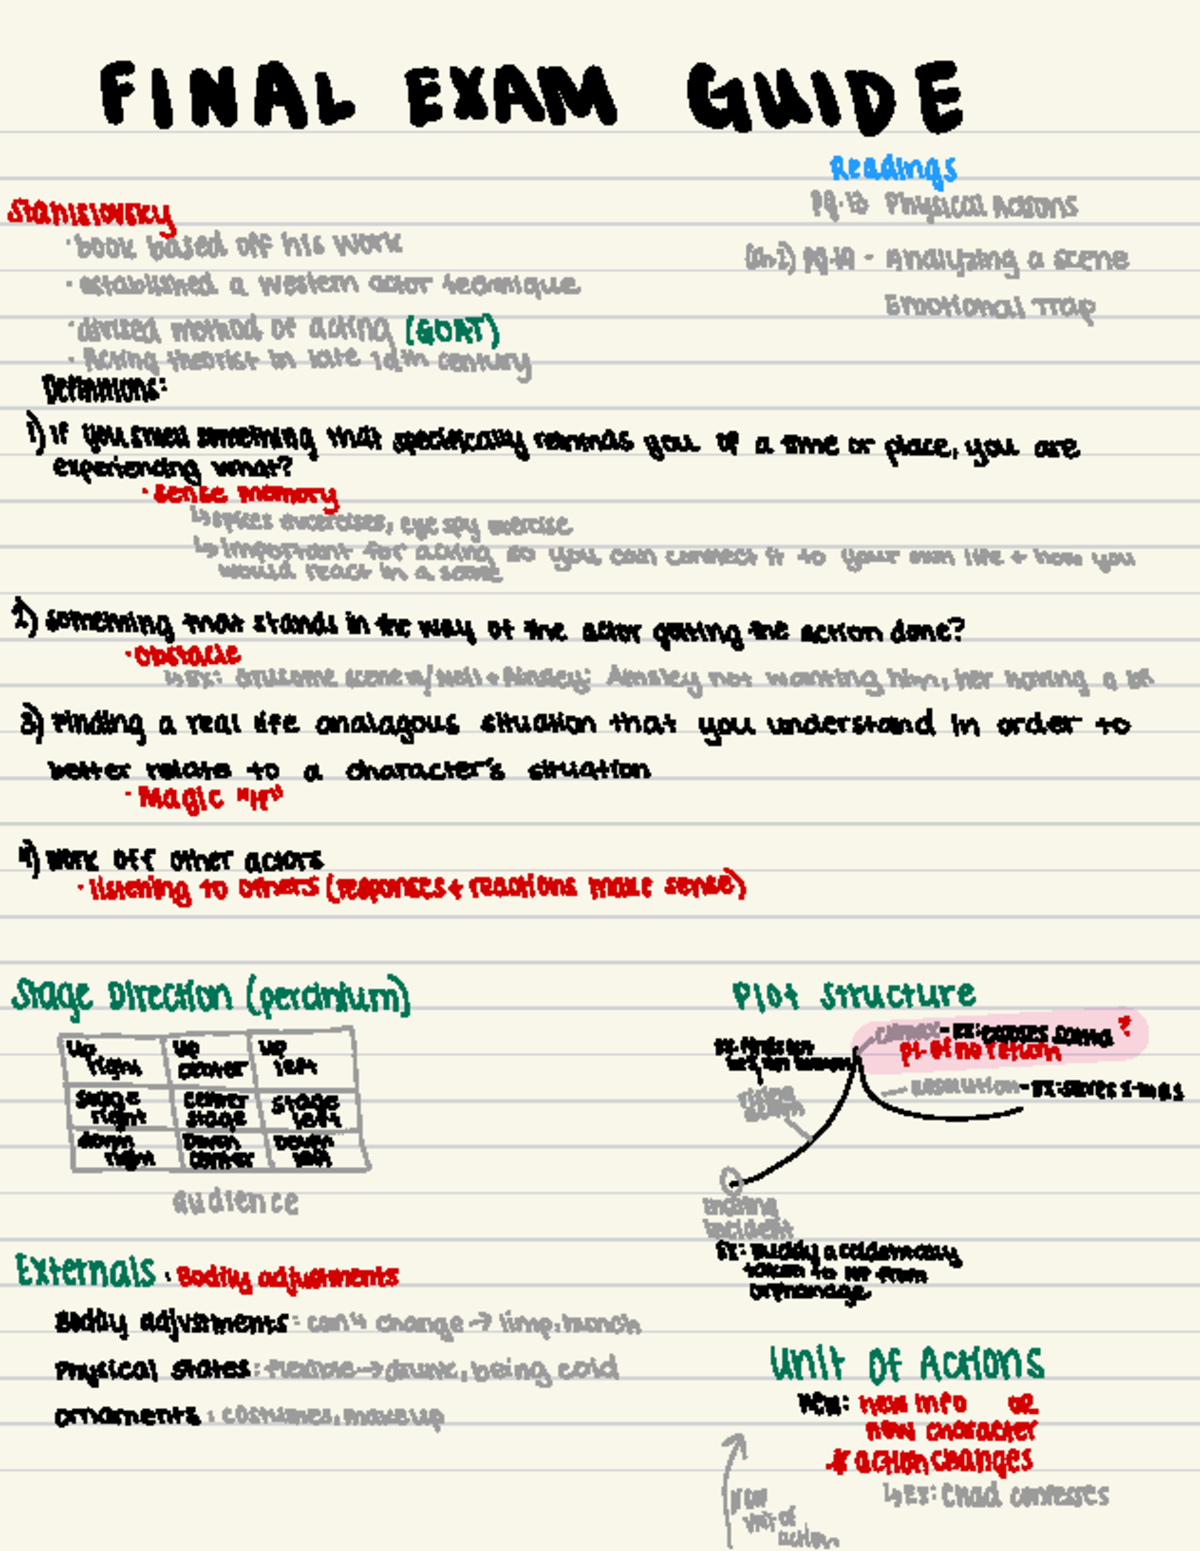 FINAL EXAM GUIDE
Readings
Pg. 13 Physical Actions
(Ch 2) Pg. 19 - Analyzing a scene
Emotional Trap
Stanislovsky
· book based off his work
· established a western actor technique
· divized method of acting (GOAT)
· Acting theorist in late 19th century
Definitions:
1) If you smell something that specifically reminds you of a time or place, you are
experiencing what?
· sense memory
↳ spices excercises, eye spy exercise
↳ important for acting so you can connect it to your own life + how you
would react in a scene
2) something that stands in the way of the actor getting the action done?
· Obstacle
↳ Ex: Gruesome scene w/ Neil + Ainsley: Ainsley not wanting him, her having a bf
3) Finding a real life analagous situation that you understand in order to
better relate to a character's situation
· Magic "If"
4) work off other actors
· listening to others (responses + reactions make sense)
Stage Direction (percinium)
up right up center up left
stage right center stage stage left
down right Down center Down left
audience
Plot Structure
climax - Ex: saves santa ?
pt. of no return
rising action
Resolution - Ex: saves X-mas
inciting
incident
Ex: Buddy accidentally
taken to NP from
orphanage
Externals · Bodily adjustments
Bodily adjustments: can't change → limp, hunch
Physical states: flexible → drunk, being cold
ornaments: costumes, makeup
Unit of Actions
New: new info or
new character
* action changes
↳ Ex: Chad confesses
new
unit of
action